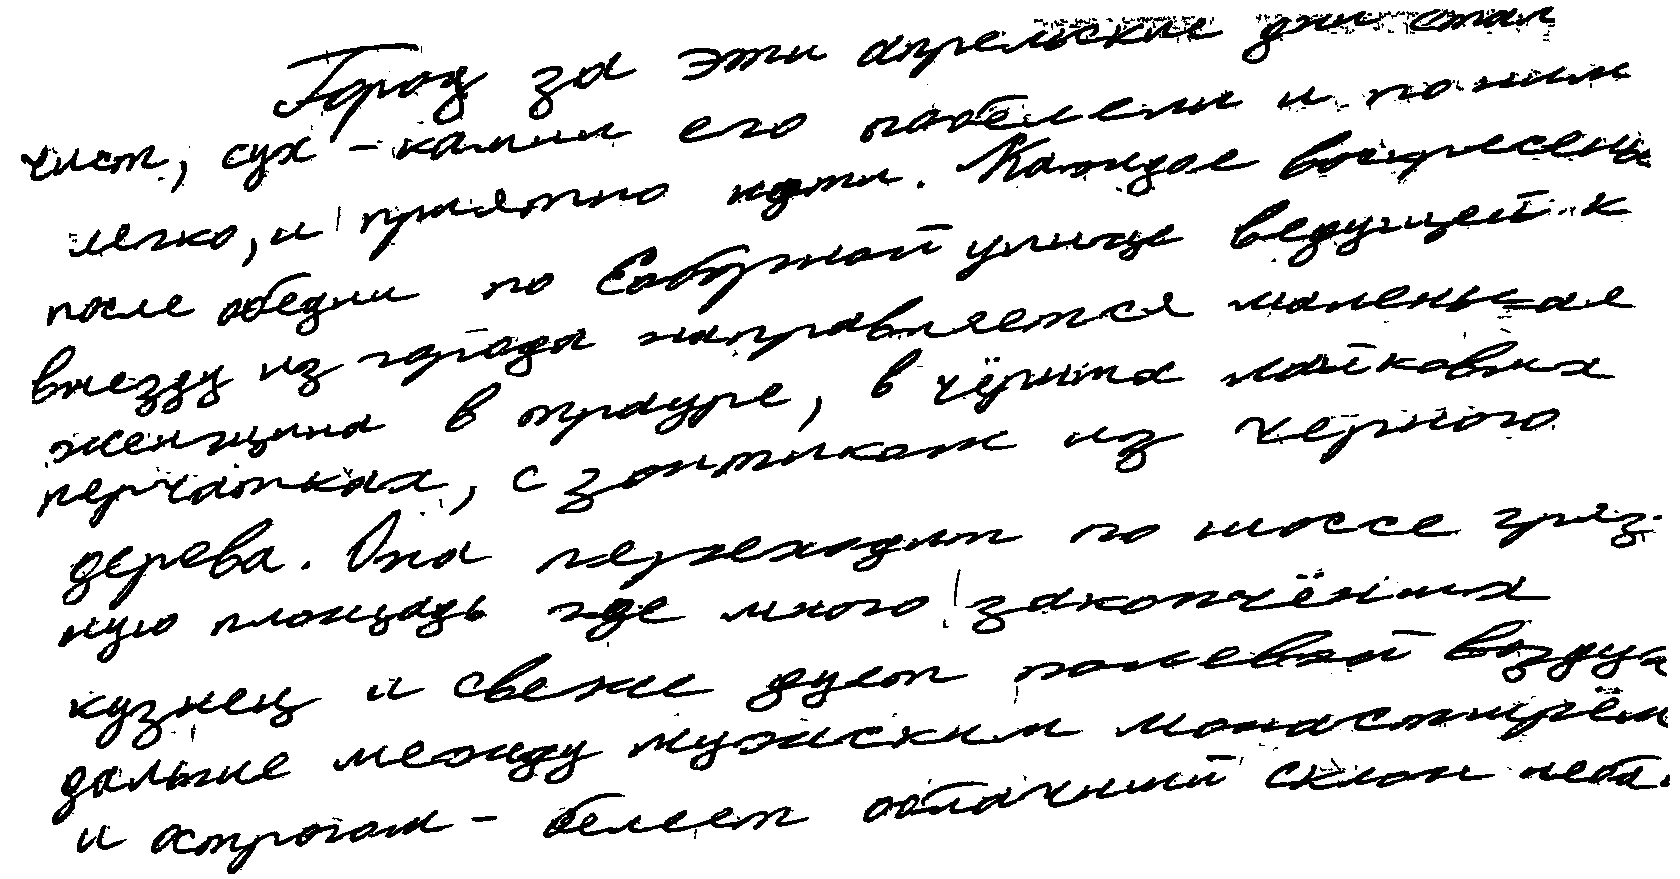 Город за эти апрельские дни стал
чист, сух – камни его побелели и по ним
легко, и приятно идти. Каждое воскресенье
после обедни по Соборной улице ведущей к
выезду из города направляется маленькая
женщина в трауре, в чёрных лайковых
перчатках, с зонтиком из черного
дерева. Она переходит по шоссе гряз-
ную площадь где много закопчённых
кузнец и свеже дует полевой воздух
дальше между мужским монастырём
и острогом – белеет облачный склон неба.